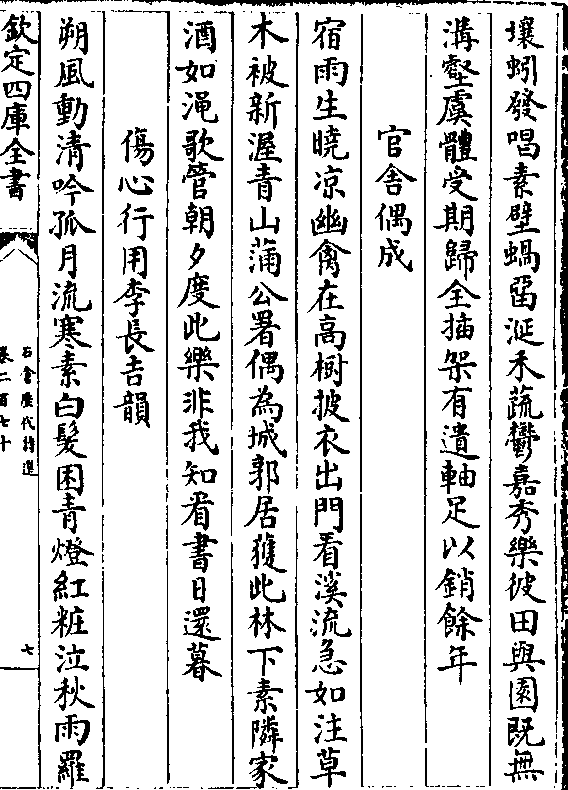 壤蚓發唱素壁蝸留涎禾蔬鬱嘉秀樂彼田與園既無
溝壑虞體受期歸全揷架有遺軸足以銷餘年
官舍偶成
宿雨生曉凉幽禽在高樹披衣出門看溪流急如注草
木被新渥青山滿公署偶為城郭居獲此林下素隣家
酒如渑歌管朝夕度此樂非我知看書日還暮
傷心行用李長吉韻
朔風動清吟孤月流寒素白髮困青燈紅粧泣秋雨羅
欽定四庫全書
石倉歷代詩選
卷二百七十
七